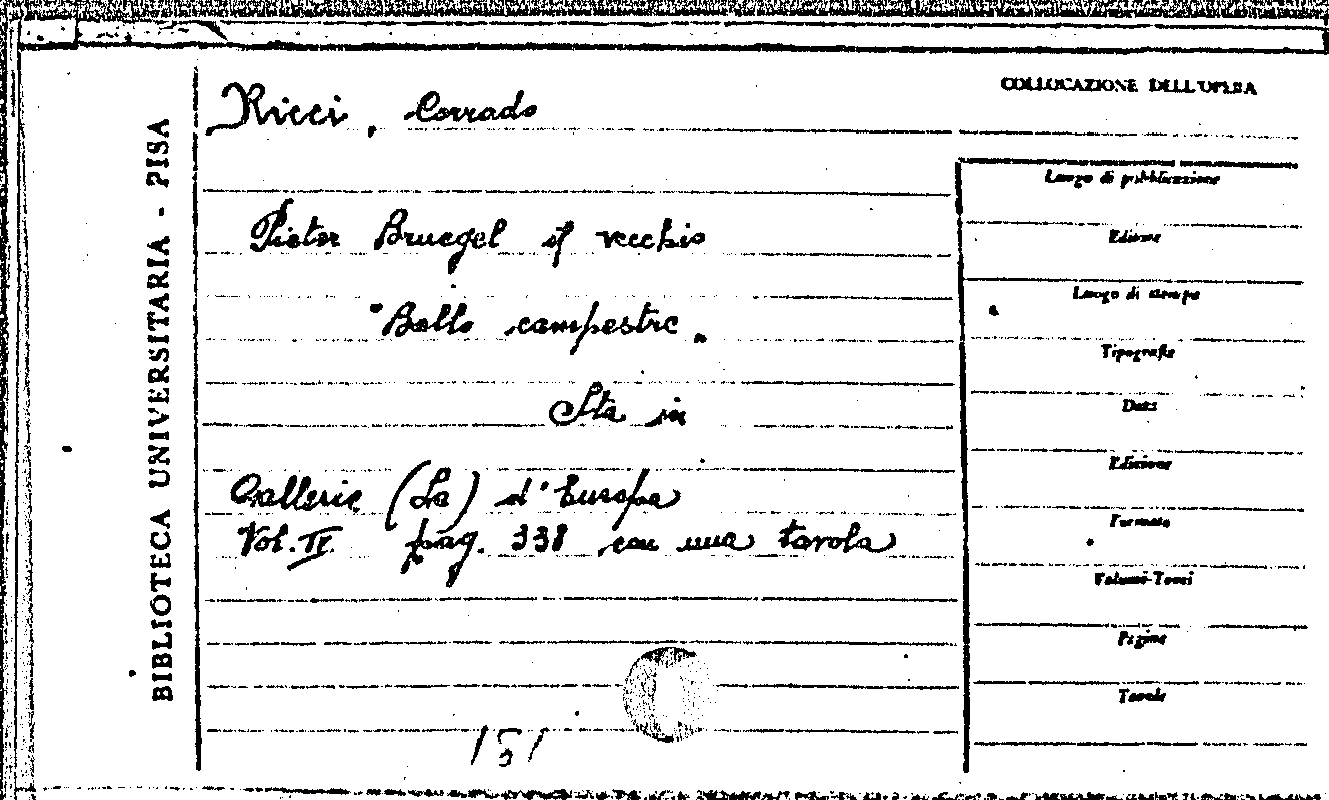 BIBLIOTECA UNIVERSITARIA - PISA
COLLOCAZIONE DELL'OPERA
Ricci, Corrado
Pieter Bruegel il vecchio
"Ballo campestre"
Sta in
Gallerie (Le) d'Europa
Vol. II pag. 338 con una tavola
Luogo di pubblicazione
Editore
Luogo di stampa
Tipografia
Data
Edizione
Formato
Volumi-Tomi
Pagine
Tavole